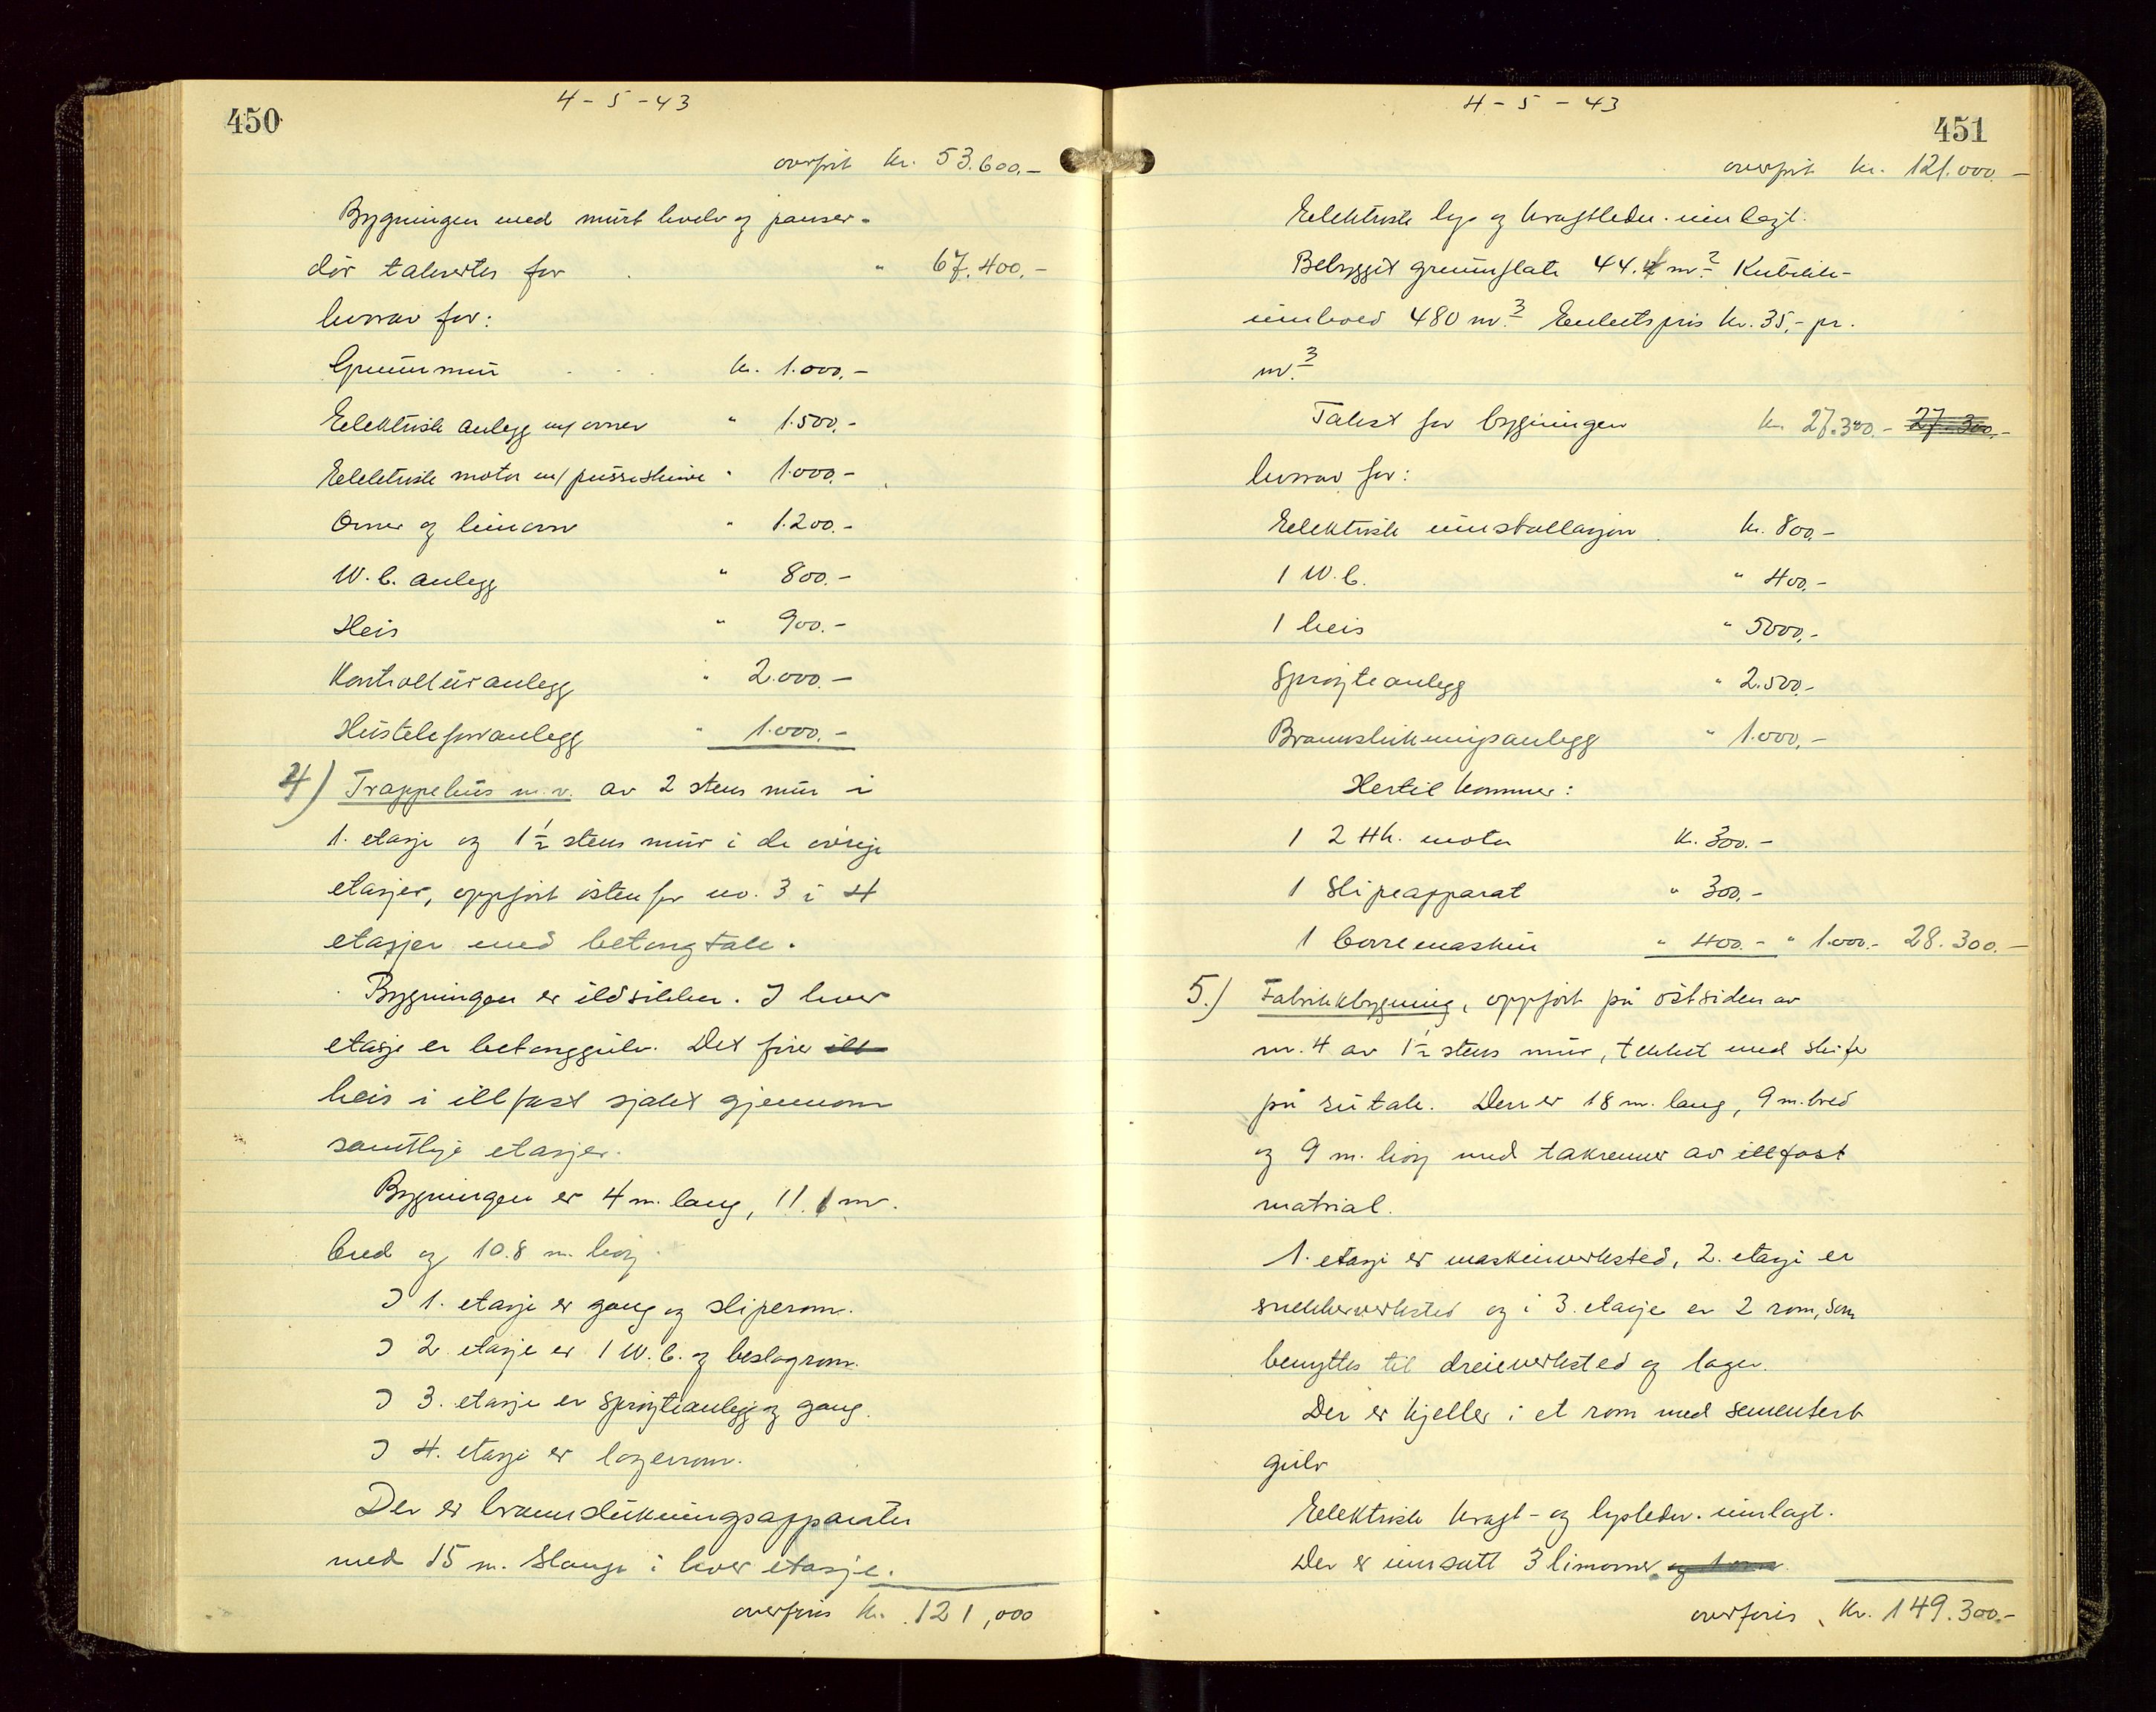 450
4-5-43
overført Kr. 53.600.-
Bygningen med murt hvelv og panser-
dør takseres for " 67.400,-
hvorav for:
Grunnmur Kr. 1.000,-
Elektrisk anlegg m/ ovner " 1.500,-
Elektrisk motor m/ pusseskive " 1.000,-
Ovner og limovn " 1.200.-
W.C. anlegg " 800.-
Heis " 900.-
Kontrollur anlegg " 2.000.-
Hustelefonanlegg " 1.000.-
4) Trappehus m.v. av 2 stens mur i
1. etasje og 1½ stens mur i de øvrige
etasjer, oppført østenfor no. 3 i 4
etasjer med betongtak.
Bygningen er ildsikker. I hver
etasje er betonggulv. Det fører ill
heis i illfast sjakt gjennom
samtlige etasjer.
Bygningen er 4 m. lang, 11.1 m.
bred og 10.8 m. høy.
I 1. etasje er gang og sliperom.
I 2. etasje er 1 W.C. og beslagrom.
I 3. etasje er sprøyteanlegg og gang.
I 4. etasje er lagerrom.
Der er brannslukningsapparater
med 15 m. slange i hver etasje.
overføres Kr. 121,000
4-5-43
451
overført Kr. 121.000.-
Elektrisk lys og kraftledn. innlagt.
Bebygget grunnflate 44.4 m.² Kubikk-
innhold 480 m.³ Enhetspris Kr. 35,- pr.
m.³
Takst for bygningen Kr. 27.300.- 27.300,-
hvorav for:
Elektrisk innstallasjon Kr. 800,-
1 W.C. " 400,-
1 heis " 5000,-
Sprøyteanlegg " 2.500.-
Brannslukningsanlegg " 1.000,-
Hertil kommer:
1 2 Hk. motor Kr. 300.-
1 Slipeapparat " 300,-
1 borremaskin " 400.- " 1.000.- 28.300.-
5.) Fabrikkbygning, oppført på østsiden av
nr. 4 av 1½ stens mur, tekket med skifer
på sutak. Den er 18 m. lang, 9 m. bred
og 9 m. høy med takrenner av illfast
matrial.
1. etasje er maskinverksted, 2. etasje er
snekkerverksted og i 3. etasje er 2 rom, som
benyttes til dreieverksted og lager.
Der er kjeller i et rom med sementert
gulv
Elektrisk kraft- og lysledn. innlagt.
Der er innsatt 3 limovner. og 1 ovn.
overføres Kr. 149.300.-